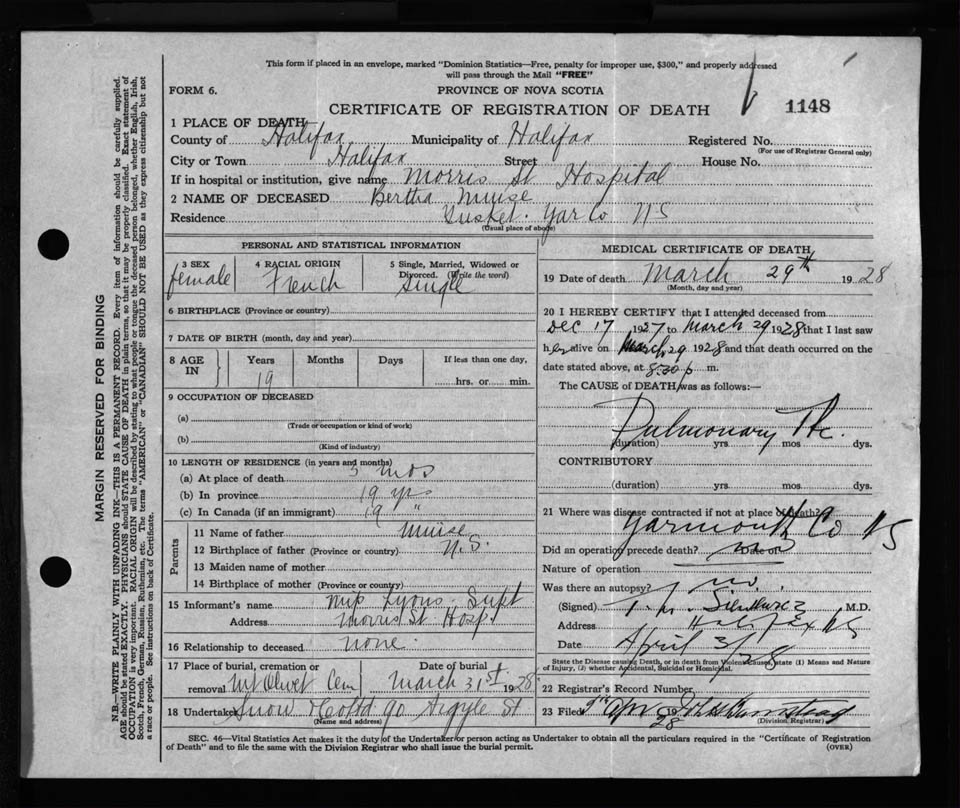 This form if placed in an envelope, marked "Dominion Statistics—Free, penalty for improper use, $300," and properly addressed
will pass through the Mail "FREE"
FORM 6.
PROVINCE OF NOVA SCOTIA
CERTIFICATE OF REGISTRATION OF DEATH
1148
1 PLACE OF DEATH
County of Halifax Municipality of Halifax Registered No.
(For use of Registrar General only)
City or Town Halifax Street House No.
If in hospital or institution, give name Morris St Hospital
2 NAME OF DECEASED Bertha Muise
Residence Tusket. Yar Co NS
(Usual place of abode)
PERSONAL AND STATISTICAL INFORMATION
3 SEX 4 RACIAL ORIGIN 5 Single, Married, Widowed or
Divorced. (Write the word)
female French Single
6 BIRTHPLACE (Province or country)
7 DATE OF BIRTH (month, day and year)
8 AGE IN Years Months Days If less than one day,
19 hrs. or min.
9 OCCUPATION OF DECEASED
(a)
(Trade or occupation or kind of work)
(b)
(Kind of industry)
10 LENGTH OF RESIDENCE (in years and months)
(a) At place of death 3 mos
(b) In province 19 yrs
(c) In Canada (if an immigrant) 19 "
Parents
11 Name of father Muise
12 Birthplace of father (Province or country) N.S.
13 Maiden name of mother
14 Birthplace of mother (Province or country)
15 Informant's name Miss Lyons Supt
Address Morris St Hosp.
16 Relationship to deceased none
17 Place of burial, cremation or Date of burial
removal Mt Olivet Cem March 31st 1928
18 Undertaker Snow & Co Ltd 90 Argyle St
(Name and address)
MEDICAL CERTIFICATE OF DEATH
19 Date of death March 29th 1928
(Month, day and year)
20 I HEREBY CERTIFY that I attended deceased from
Dec 17 1927 to March 29 1928 that I last saw
her alive on March 29 1928 and that death occurred on the
date stated above, at 8.30 p m.
The CAUSE of DEATH was as follows:—
Pulmonary Tbc.
(duration) yrs mos dys.
CONTRIBUTORY
(duration) yrs mos dys.
21 Where was disease contracted if not at place of death?
Yarmouth Co NS
Did an operation precede death? Date of
Nature of operation
Was there an autopsy? no
(Signed) M.D.
Address Halifax NS
Date April 3/28
State the Disease causing Death, or in death from Violent causes, state (1) Means and Nature
of Injury, (2) whether Accidental, Suicidal or Homicidal.
22 Registrar's Record Number
23 Filed 28
(Division Registrar)
SEC. 46—Vital Statistics Act makes it the duty of the Undertaker or person acting as Undertaker to obtain all the particulars required in the "Certificate of Registration
of Death" and to file the same with the Division Registrar who shall issue the burial permit.
(OVER)
MARGIN RESERVED FOR BINDING
N.B.—WRITE PLAINLY WITH UNFADING INK—THIS IS A PERMANENT RECORD. Every item of information should be carefully supplied.
AGE should be stated EXACTLY. PHYSICIANS should STATE CAUSE OF DEATH in plain terms, so that it may be properly classified. Exact statement of
OCCUPATION is very important. RACIAL ORIGIN will be described by stating to what people or tongue the deceased person belonged, whether English, Irish,
Scotch, French, German, Russian, Ruthenian, etc. The terms "AMERICAN" or "CANADIAN" SHOULD NOT BE USED as they express citizenship but not
a race or people. See instructions on back of Certificate.